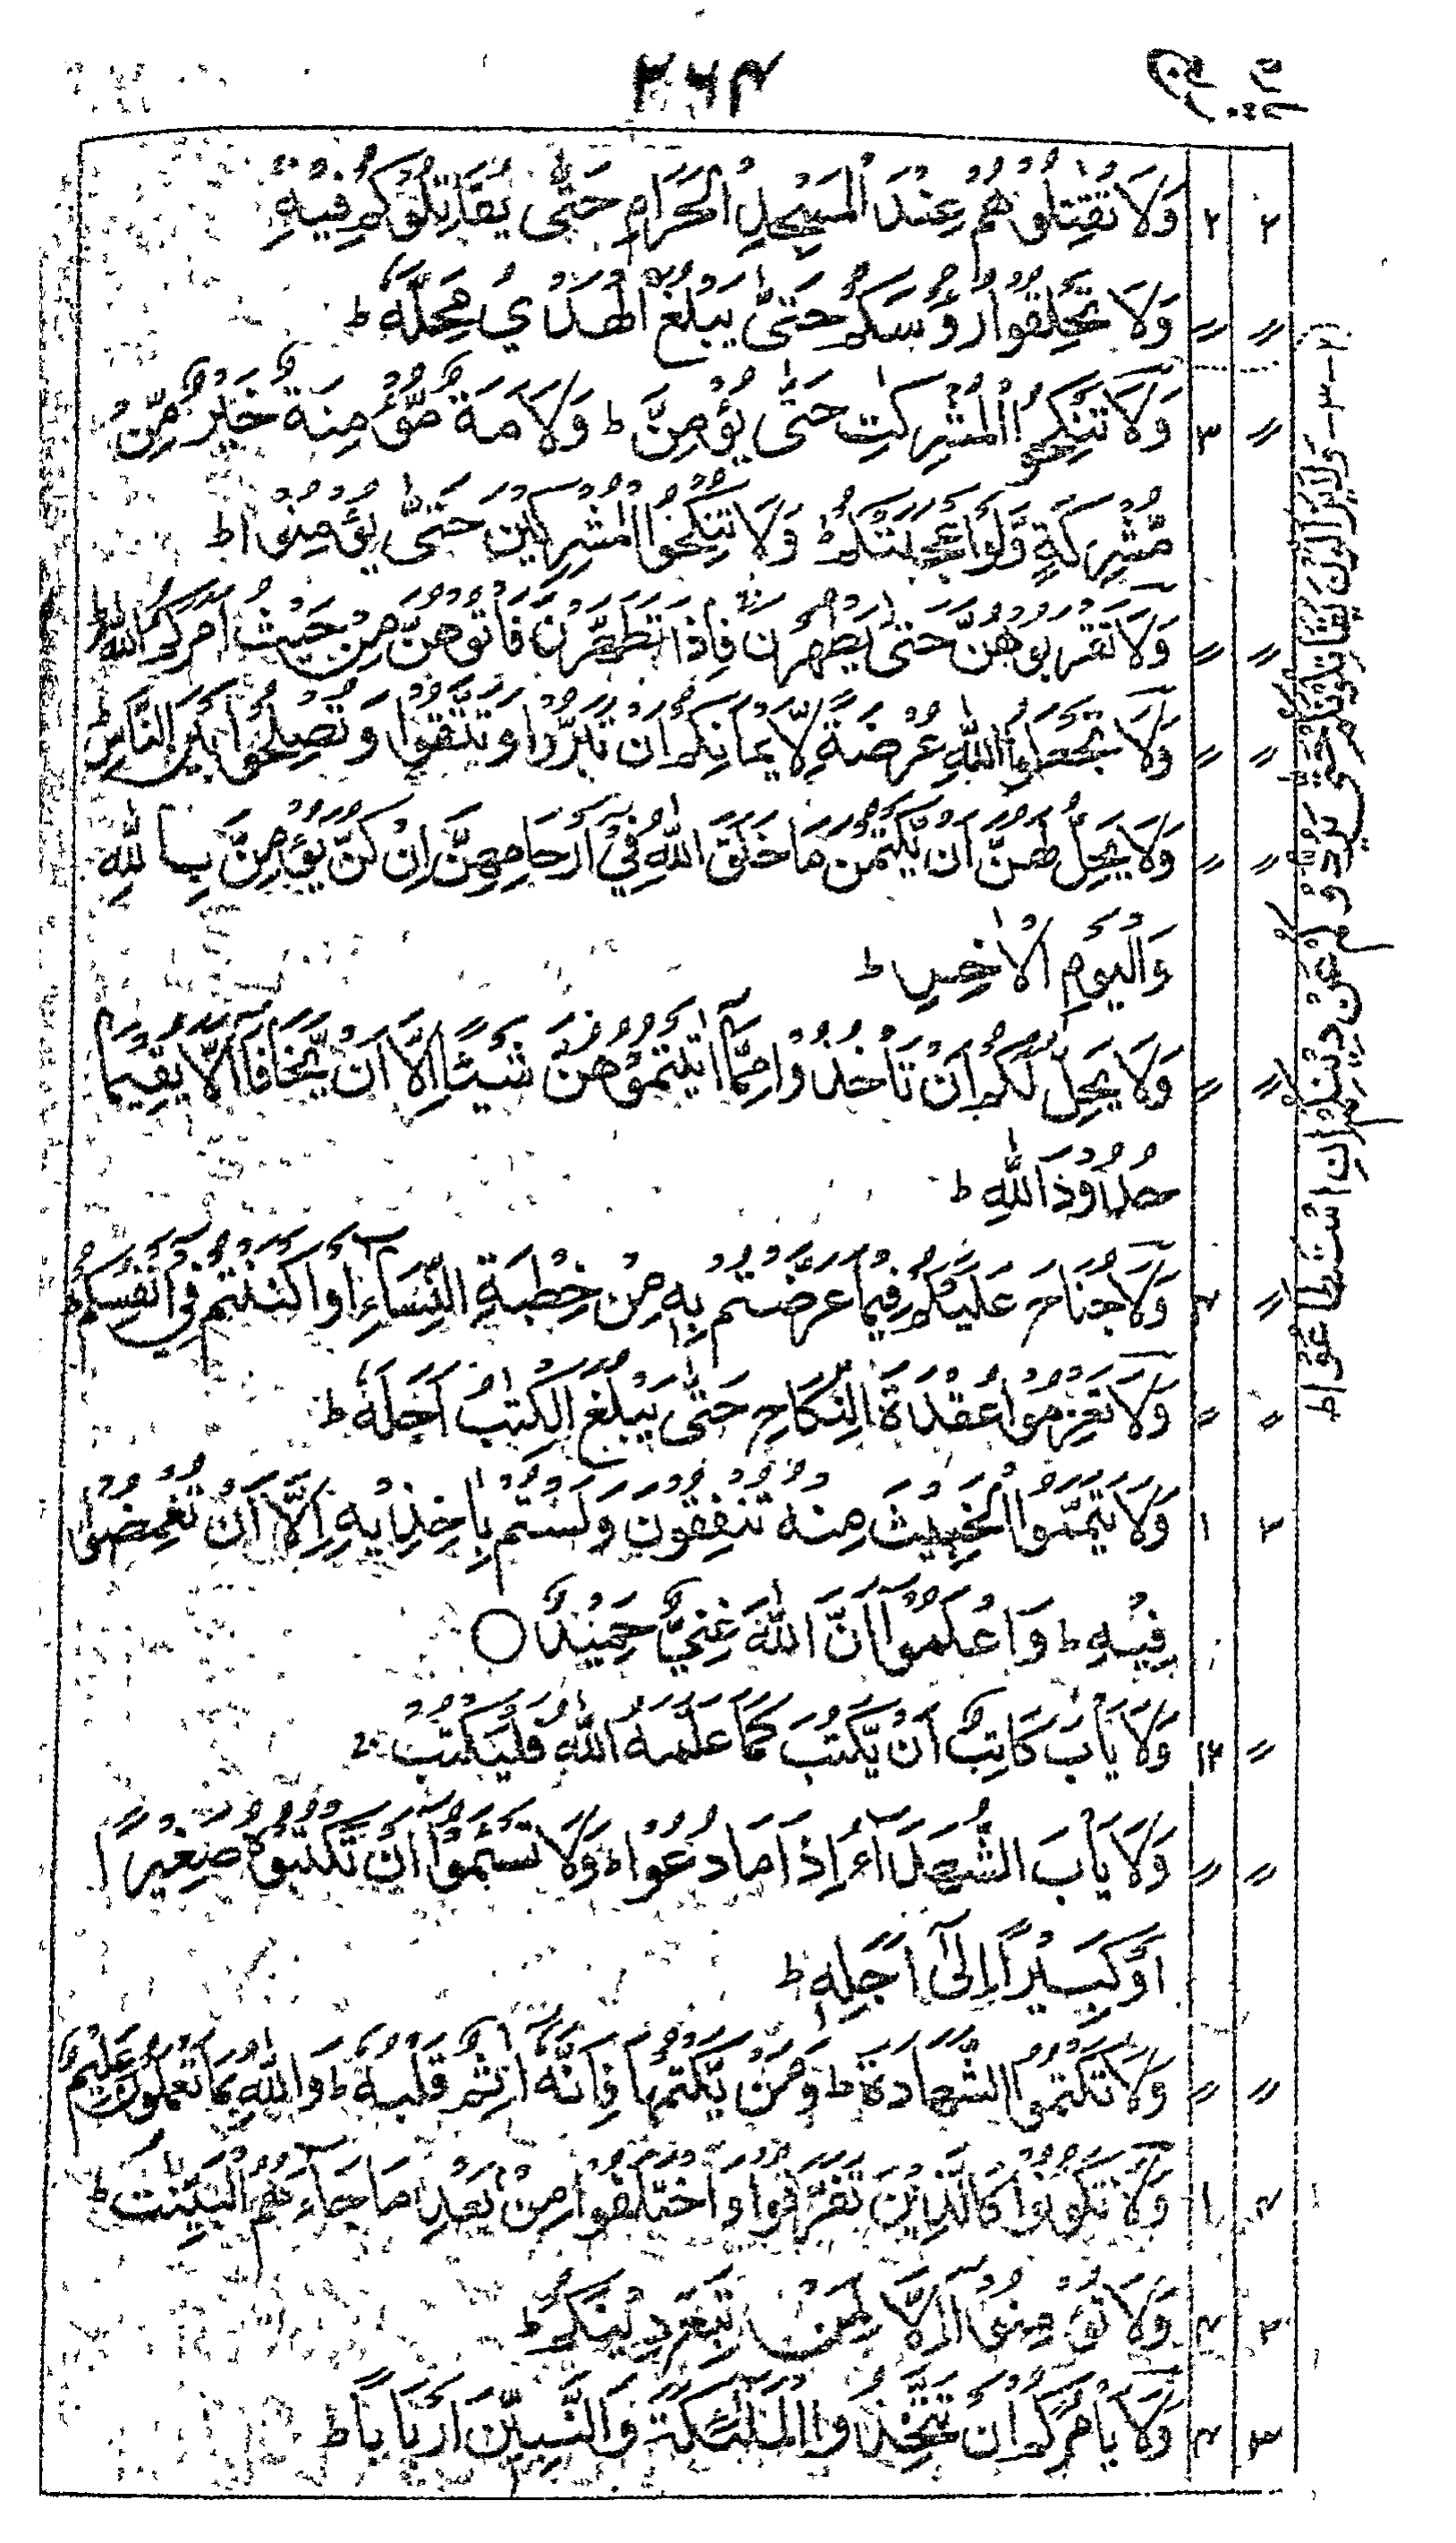 ۲۶۴
۲ ۲ وَلَا تُقٰتِلُوْهُمْ عِنْدَ الْمَسْجِدِ الْحَرَامِ حَتّٰى يُقٰتِلُوْكُمْ فِيْهِ
〃 〃 وَلَا تَحْلِقُوْا رُءُوْسَكُمْ حَتّٰى يَبْلُغَ الْهَدْيُ مَحِلَّهٗ ط
〃 ۳ وَلَا تَنْكِحُوا الْمُشْرِكٰتِ حَتّٰى يُؤْمِنَّ ط وَلَاَمَةٌ مُّؤْمِنَةٌ خَيْرٌ مِّنْ
مُّشْرِكَةٍ وَّلَوْ اَعْجَبَتْكُمْ ج وَلَا تُنْكِحُوا الْمُشْرِكِيْنَ حَتّٰى يُؤْمِنُوْا ط
〃 〃 وَلَا تَقْرَبُوْهُنَّ حَتّٰى يَطْهُرْنَ ج فَاِذَا تَطَهَّرْنَ فَاْتُوْهُنَّ مِنْ حَيْثُ اَمَرَكُمُ اللّٰهُ ط
〃 〃 وَلَا تَجْعَلُوا اللّٰهَ عُرْضَةً لِّاَيْمَانِكُمْ اَنْ تَبَرُّوْا وَتَتَّقُوْا وَتُصْلِحُوْا بَيْنَ النَّاسِ ط
〃 〃 وَلَا يَحِلُّ لَهُنَّ اَنْ يَّكْتُمْنَ مَا خَلَقَ اللّٰهُ فِيْ اَرْحَامِهِنَّ اِنْ كُنَّ يُؤْمِنَّ بِاللّٰهِ
وَالْيَوْمِ الْاٰخِرِ ط
〃 〃 وَلَا يَحِلُّ لَكُمْ اَنْ تَاْخُذُوْا مِمَّا اٰتَيْتُمُوْهُنَّ شَيْئًا اِلَّا اَنْ يَّخَافَا اَلَّا يُقِيْمَا
حُدُوْدَ اللّٰهِ ط
〃 ۴ وَلَا جُنَاحَ عَلَيْكُمْ فِيْمَا عَرَّضْتُمْ بِهٖ مِنْ خِطْبَةِ النِّسَآءِ اَوْ اَكْنَنْتُمْ فِيْ اَنْفُسِكُمْ ط
〃 〃 وَلَا تَعْزِمُوْا عُقْدَةَ النِّكَاحِ حَتّٰى يَبْلُغَ الْكِتٰبُ اَجَلَهٗ ط
۳ ۱ وَلَا تَيَمَّمُوا الْخَبِيْثَ مِنْهُ تُنْفِقُوْنَ وَلَسْتُمْ بِاٰخِذِيْهِ اِلَّا اَنْ تُغْمِضُوْا
فِيْهِ ط وَاعْلَمُوْا اَنَّ اللّٰهَ غَنِيٌّ حَمِيْدٌ ○
〃 ۱۲ وَلَا يَاْبَ كَاتِبٌ اَنْ يَّكْتُبَ كَمَا عَلَّمَهُ اللّٰهُ فَلْيَكْتُبْ ج
〃 〃 وَلَا يَاْبَ الشُّهَدَآءُ اِذَا مَا دُعُوْا ط وَلَا تَسْئَمُوْا اَنْ تَكْتُبُوْهُ صَغِيْرًا
اَوْ كَبِيْرًا اِلٰى اَجَلِهٖ ط
〃 〃 وَلَا تَكْتُمُوا الشَّهَادَةَ ط وَمَنْ يَّكْتُمْهَا فَاِنَّهٗ اٰثِمٌ قَلْبُهٗ ط وَاللّٰهُ بِمَا تَعْمَلُوْنَ عَلِيْمٌ
۴ ۱ وَلَا تَكُوْنُوْا كَالَّذِيْنَ تَفَرَّقُوْا وَاخْتَلَفُوْا مِنْ بَعْدِ مَا جَآءَهُمُ الْبَيِّنٰتُ ط
۳ ۴ وَلَا تُؤْمِنُوْا اِلَّا لِمَنْ تَبِعَ دِيْنَكُمْ ط
۳ ۴ وَلَا يَاْمُرَكُمْ اَنْ تَتَّخِذُوا الْمَلٰٓئِكَةَ وَالنَّبِيّٖنَ اَرْبَابًا ط
وَلَا يَزَالُوْنَ يُقَاتِلُوْنَكُمْ حَتّٰى يَرُدُّوْكُمْ عَنْ دِيْنِكُمْ اِنِ اسْتَطَاعُوْا ط